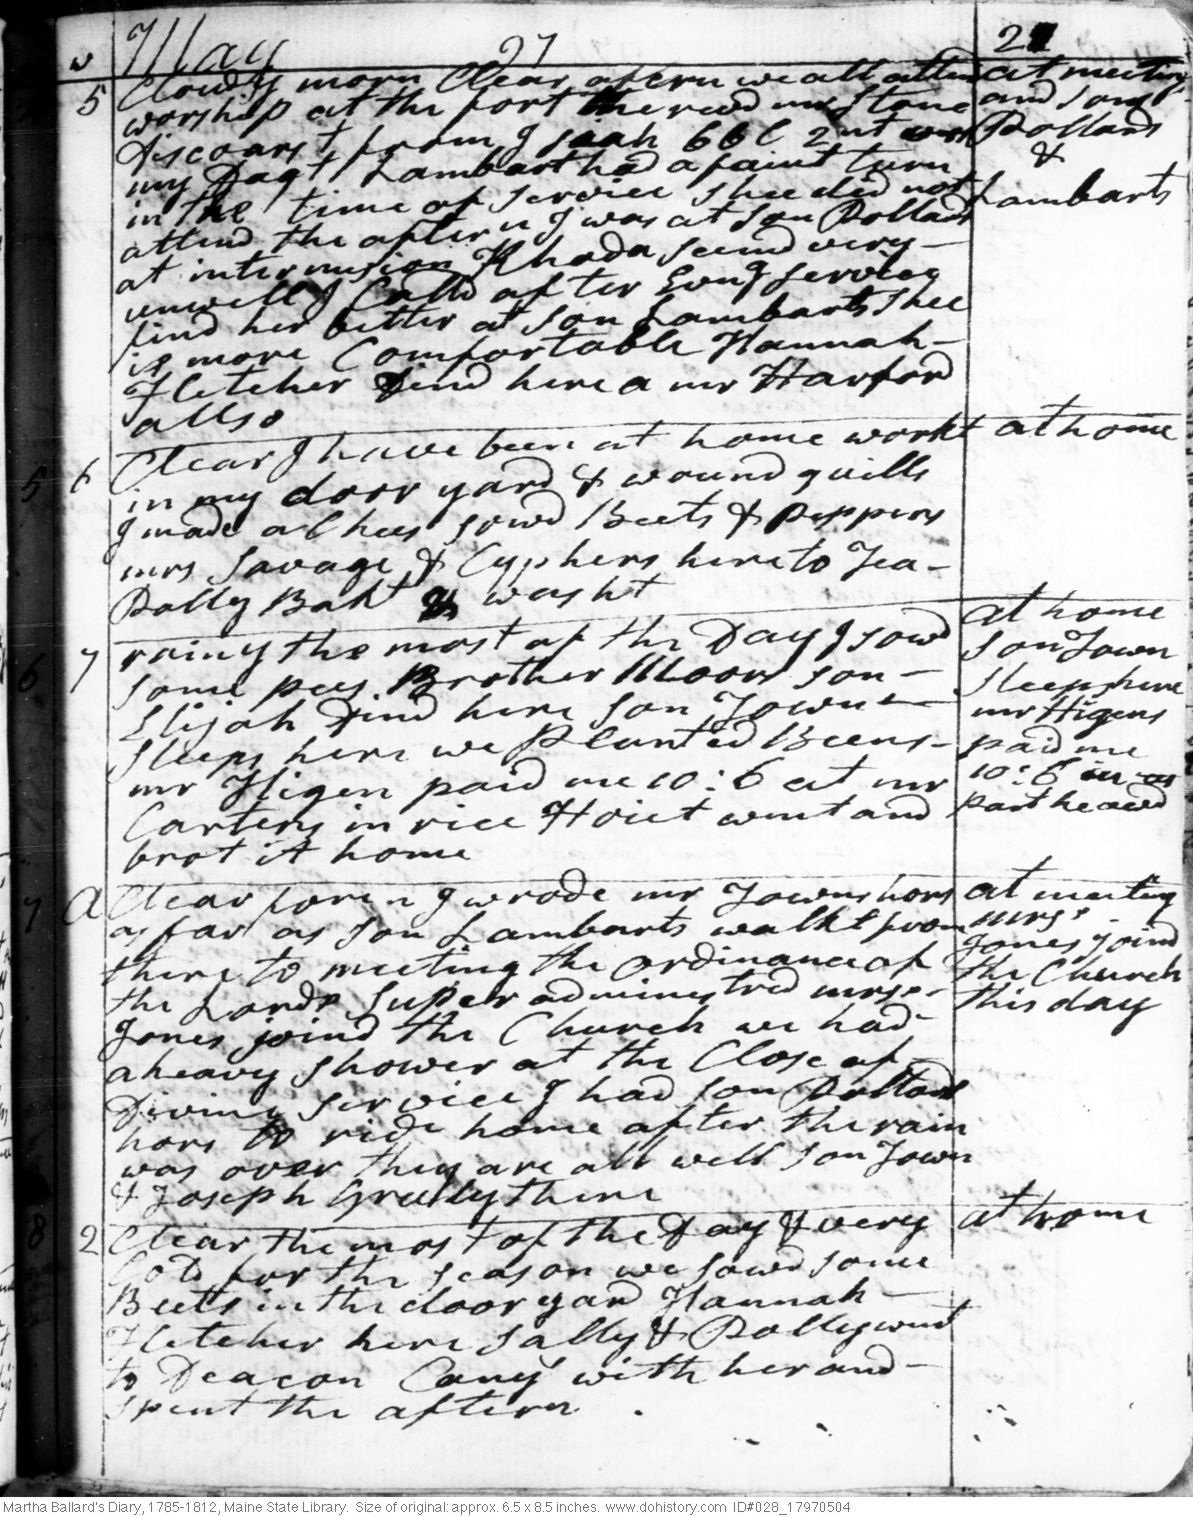 w May 97 21
5 Cloudy morn Clear aftern we all atten at meeting
worship at the fort the revd mr Stone and sons
discoarst from Isaah 66 C 2nt vers Pollards
my Dagt Lambart had a faint turn &
in the time of service shee did not Lambarts
attend the aftern I was at son Pollards
at intermision Rhoda seemd very
unwell I Calld after Evng service
find her better at son Lambarts Shee
is more Comfortable Hannah
Fletcher dind here a mr Harford
allso
5 6 Clear I have been at home workt at home
in my door yard & wound quills
I made a Chees sowd Beets & peppers
mrs Savage & Cyphers here to Tea
Dolly Bakt & washt
6 7 rainy the most of the Day I sowd at home
some pees Brother Moors son son Town
Elijah dind here son Town Sleeps here
Sleeps here we Planted Beens mr Higens
mr Higen paid me 10:6 at mr paid me
Carters in rice Hoiet went and 10:6 in as
brot it home part heawd
7 A Clear foren I wrode mr Towns hors at meeting
as far as son Lambarts walkt from mrss
there to meeting the ordinance of Jones joind
the Lords Super administred mrss the Church
Jones joind the Church we had this day
a heavy shower at the Close of
Divine service I had son Pollards
hors to ride home after the rain
was over they are all well son Town
& Joseph Greelly there
8 2 Clear the most of the day & very at home
Cold for the season we sowd some
Beets in the door yard Hannah
Fletcher here Sally & Dolly went
to Deacon Conys with her and
spent the aftern
Martha Ballard's Diary, 1785-1812, Maine State Library. Size of original: approx. 6.5 x 8.5 inches. www.dohistory.com ID#028_17970504